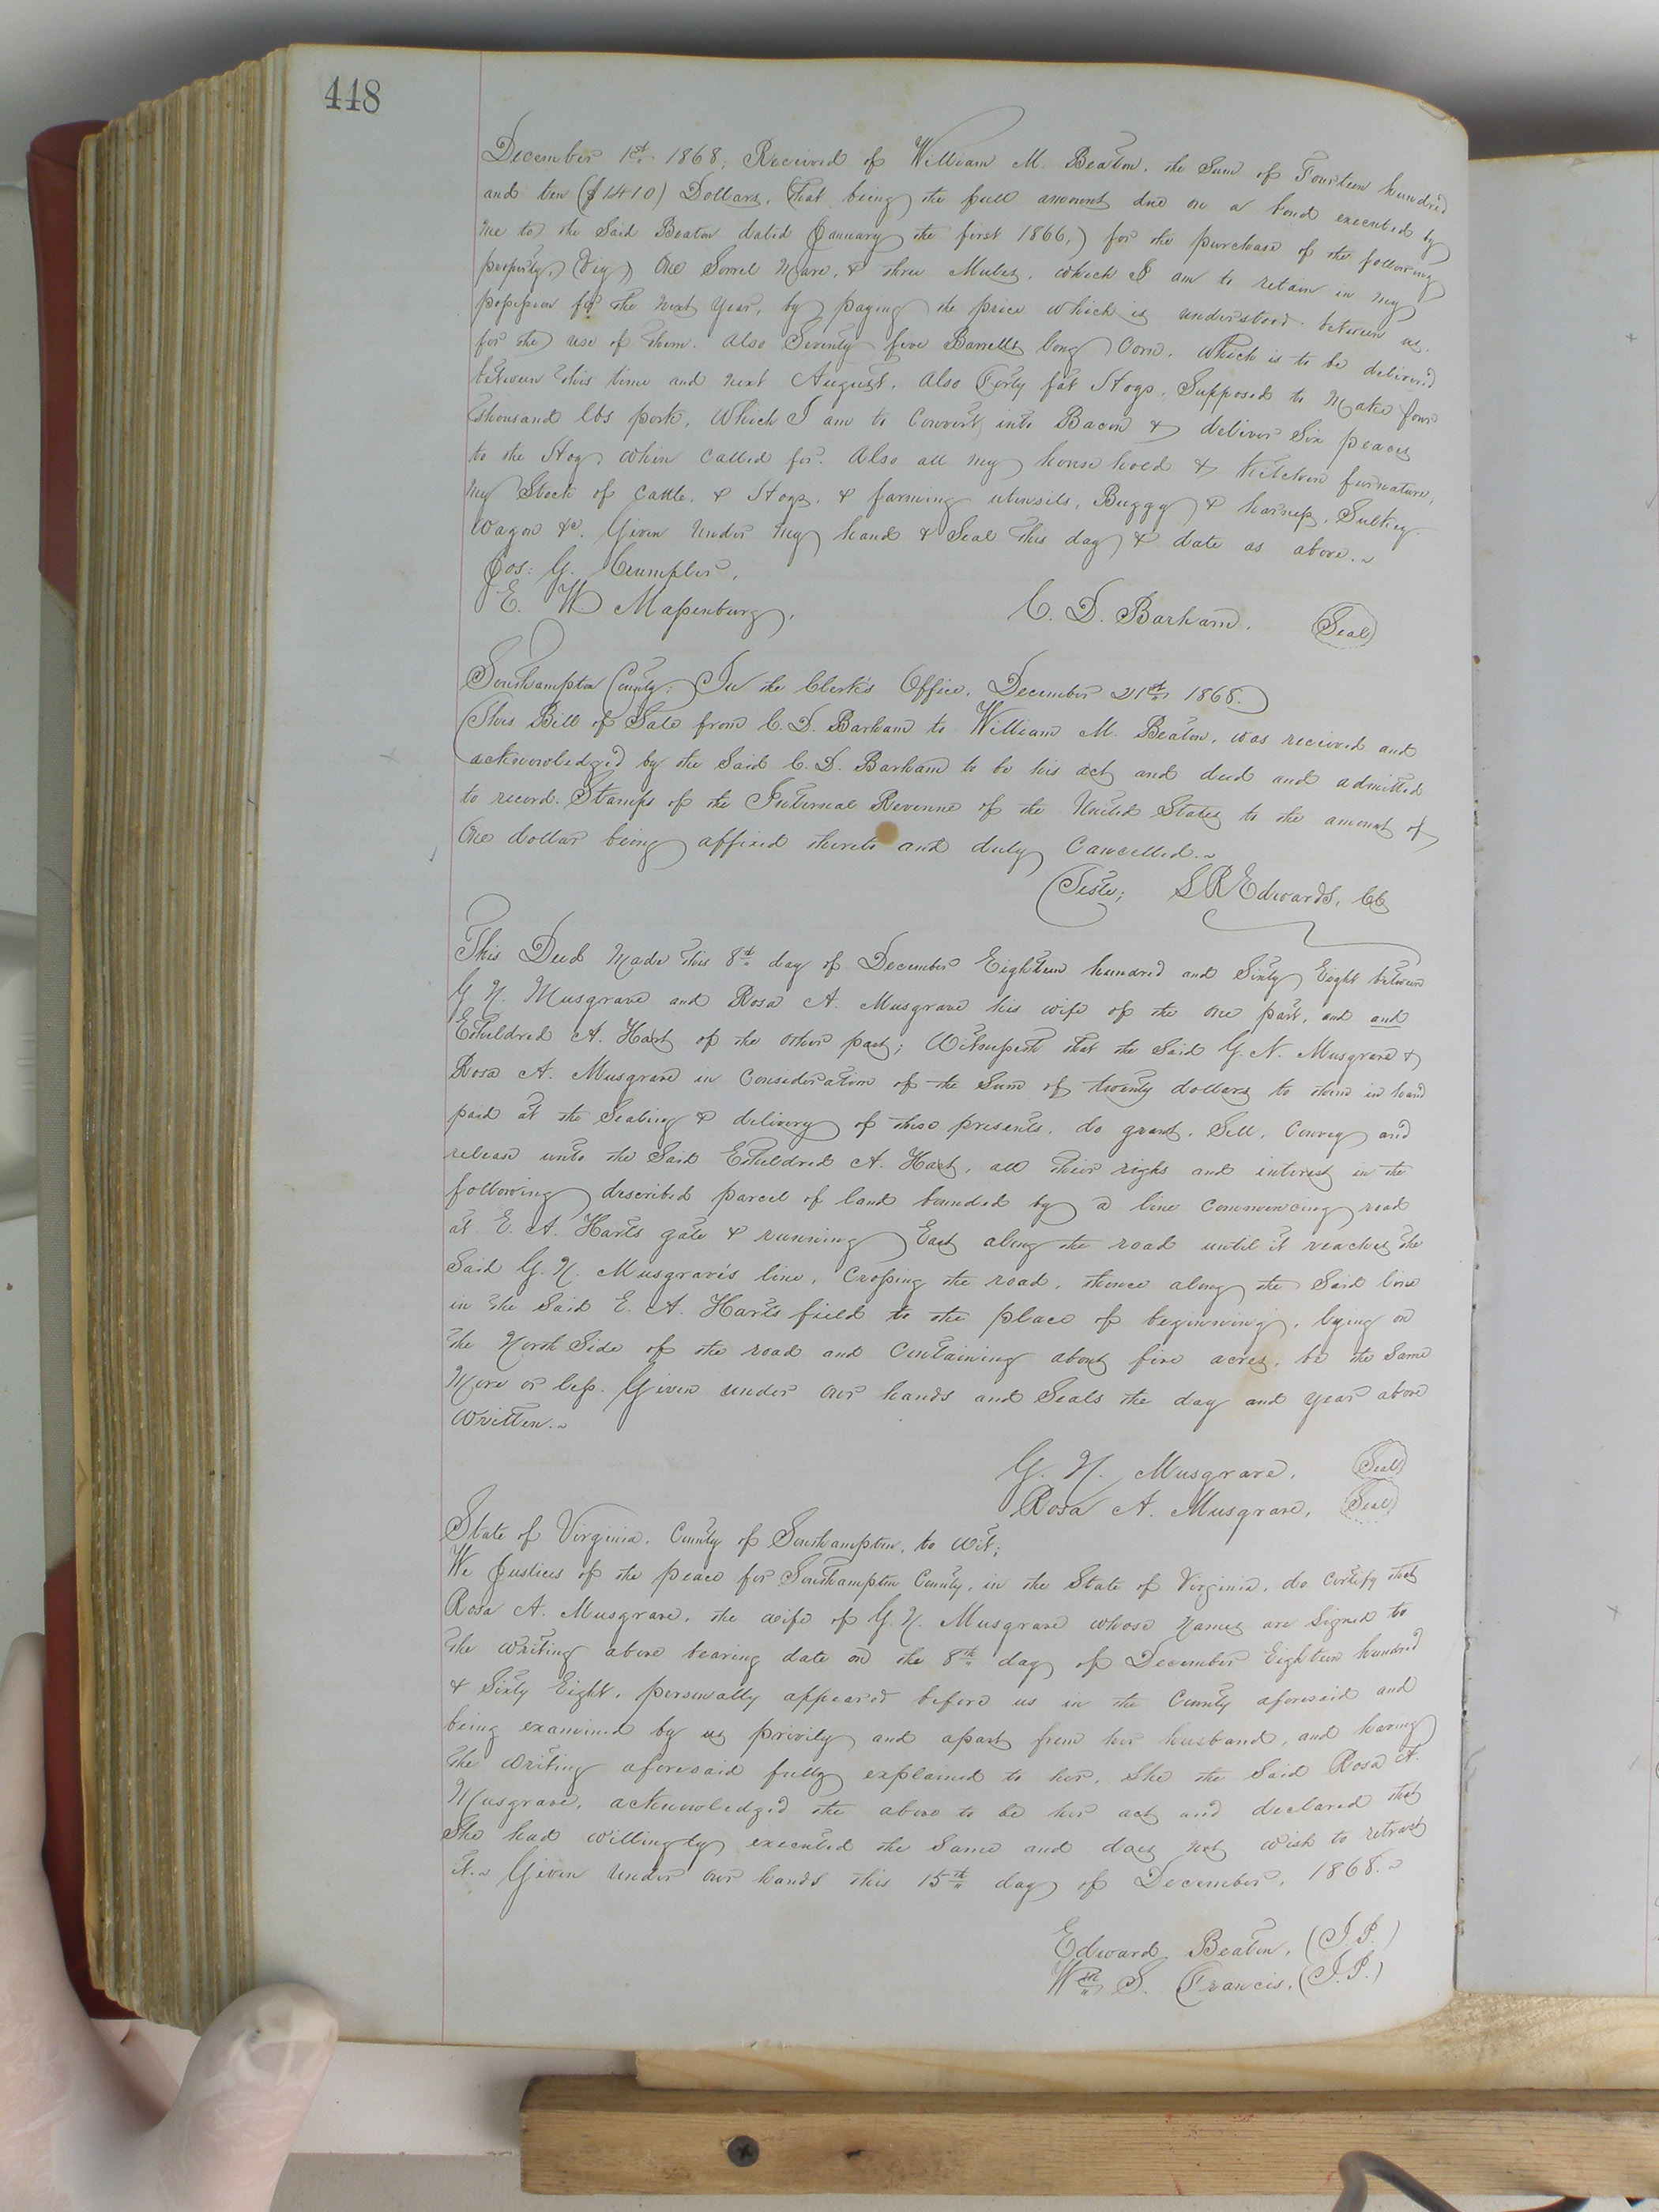 448
December 1st 1868, Received of William M. Beaton, the Sum of Fourteen hundred
and ten ($1410) Dollars, (that being the full amount due on a bond executed by
me to the Said Beaton dated January the first 1866,) for the purchase of the following
property, (viz) One Sorrel Mare, & three Mules, which I am to retain in my
possession for the next Year, by paying the price which is understood between us
for the use of them. Also Seventy five Barrells long Corn, which is to be delivered
between this time and next August. Also Forty fat Hogs, Supposed to Make four
thousand lbs pork, Which I am to Convert into Bacon & deliver Six peaces
to the Hog, when Called for. Also all my house hold & Kitchen furnature,
my Stock of Cattle, & Hogs, & farming utensils, Buggy & harness, Sulkey
Wagon &c. Given under my hand & Seal this day & date as above.~
Jos: G. Crumpler,
E. W Massenburg,
C. D. Barham. (Seal)
Southampton County: In the Clerk's Office, December 21st 1868.
This Bill of Sale from C. D. Barham to William M. Beaton, was recieved and
acknowledged by the Said C. D. Barham to be his act and deed and admitted
to record. Stamps of the Internal Revenue of the United States to the amount of
One dollar being affixed thereto and duly Cancelled.~
Teste; L R Edwards, CC
This Deed Made this 8th day of December Eighteen hundred and Sixty Eight between
G N. Musgrave and Rosa A. Musgrave his wife of the one part, and and
Etheldred A. Hart of the other part; Witnesseth that the Said G. N. Musgrave &
Rosa A. Musgrave in Consideration of the Sum of twenty dollars to them in hand
paid at the Sealing & delivery of these presents, do grant, Sell, Convey and
release unto the Said Etheldred A. Hart, all their right and interest in the
following described parcel of land bounded by a line Commencing road
at E. A. Harts gate & running East along the road until it reaches the
Said G. N. Musgrave's line, Crossing the road, thence along the Said line
in the Said E. A. Harts field to the place of beginning, lying on
the North Side of the road and Containing about five acres, be the Same
More or less. Given under our hands and Seals the day and year above
Written.~
G. N. Musgrave, (Seal)
Rosa A. Musgrave, (Seal)
State of Virginia, County of Southampton, to wit;
We Justices of the peace for Southampton County, in the State of Virginia, do certify that
Rosa A. Musgrave, the wife of G. N. Musgrave whose names are Signed to
the writing above bearing date on the 8th day of December Eighteen hundred
& Sixty Eight, personally appeared before us in the County aforesaid and
being examined by us privily and apart from her husband, and having
the writing aforesaid fully explained to her, She the Said Rosa A.
Musgrave, acknowledged the above to be her act and declared that
She had willingly executed the Same and does not wish to retract
it.~ Given under our hands this 15th day of December, 1868.~
Edward Beaton, (J.P.)
Wm S. Francis, (J.P.)